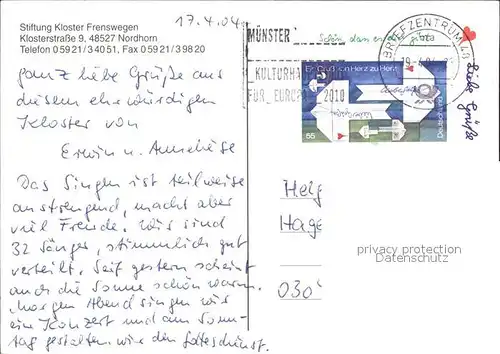 17.4.04
Stiftung Kloster Frenswegen
Klosterstraße 9, 48527 Nordhorn
Telefon 0 59 21/3 40 51, Fax 0 59 21/3 98 20
ganz liebe Grüße aus
diesem ehrwürdigen
Kloster von
Erwin u. Anneliese
Das Singen ist teilweise
anstrengend, macht aber
viel Freude. Wir sind
32 Sänger, stimmlich gut
verteilt. Seit gestern scheint
auch die Sonne schön warm.
Morgen Abend singen wir
ein Konzert und am Sonn-
tag gestalten wir den Gottesdienst.
MÜNSTER
Schön, dass es dich gibt
KULTURHA
FÜR EUROPA 2010
BRIEFZENTRUM 48
Ein Gruß von Herz zu Herz
55
Deutschland
Liebe Grüße
Helg
Hage
030
privacy protection
Datenschutz